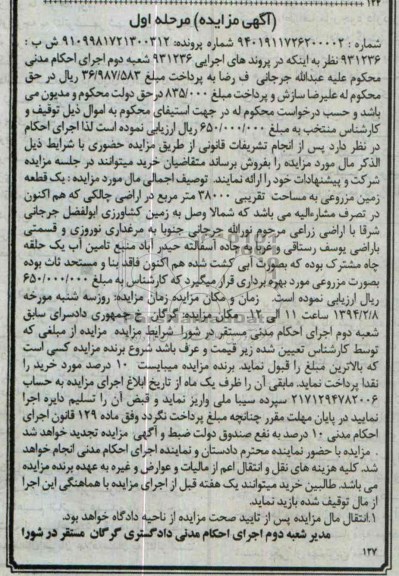 ۱۲۲
(آگهی مزایده) مرحله اول
شماره : ۹۴۰۱۹۱۱۷۲۶۲۰۰۰۰۲ شماره پرونده: ۹۱۰۹۹۸۱۷۲۱۳۰۰۳۱۲ ش ب :
۹۳۱۲۳۶ نظر به اینکه در پروند های اجرایی ۹۳۱۲۳۶ شعبه دوم اجرای احکام مدنی
محکوم علیه عبدالله جرجانی ف رضا به پرداخت مبلغ ۳۶/۹۸۷/۵۸۳ ریال در حق
محکوم له علیرضا سازش و پرداخت مبلغ ۸۳۵/۰۰۰ درحق دولت محکوم و مدیون می
باشد و حسب درخواست محکوم له در جهت استیفای محکوم به اموال ذیل توقیف و
کارشناس منتخب به مبلغ ۶۵۰/۰۰۰/۰۰۰ ریال ارزیابی نموده است لذا اجرای احکام
در نظر دارد پس از انجام تشریفات قانونی از طریق مزایده حضوری با شرایط ذیل
الذکر مال مورد مزایده را بفروش برساند متقاضیان خرید میتوانند در جلسه مزایده
شرکت و پیشنهادات خود را ارائه نمایند. توصیف اجمالی مال مورد مزایده : یک قطعه
زمین مزروعی به مساحت تقریبی ۳۸۰۰۰ متر مربع در اراضی چالکی که هم اکنون
در تصرف مشارءالیه می باشد که شمالا وصل به زمین کشاورزی ابولفضل جرجانی
شرقا با اراضی زراعی مرحوم نورالله جرجانی جنوبا به مرغداری نوروزی و قسمتی
باراضی یوسف رستاقی و غربا به جاده آسفالته حیدر آباد منبع تامین آب یک حلقه
چاه مشترک بوده که بصورت آبی کشت شده هم اکنون فاقد بنا و مستحد ثات بوده
بصورت مزروعی مورد بهره برداری قرار میگیرد که کارشناس به مبلغ ۶۵۰/۰۰۰/۰۰۰
ریال ارزیابی نموده است. زمان و مکان مزایده زمان مزایده: روزسه شنبه مورخه
۱۳۹۴/۲/۸ ساعت ۱۱ الی ۱۲ مکان مزایده: گرگان خ جمهوری دادسرای سابق
شعبه دوم اجرای احکام مدنی مستقر در شورا شرایط مزایده مزایده از مبلغی که
توسط کارشناس تعیین شده زیر قیمت و عرف باشد شروع برنده مزایده کسی است
که بالاترین مبلغ را قبول نماید. برنده مزایده میبایست ۱۰ درصد مورد خرید را
نقدا پرداخت نماید. مابقی آن را ظرف یک ماه از تاریخ ابلاغ اجرای مزایده به حساب
۲۱۷۱۲۹۴۷۸۲۰۰۶ سپرده سیبا ملی واریز نماید و قبض آن را تسلیم دایره اجرا
نمایید در پایان مهلت مقرر چنانچه مبلغ پرداخت نگردد وفق ماده ۱۲۹ قانون اجرای
احکام مدنی ۱۰ درصد به نفع صندوق دولت ضبط و آگهی مزایده تجدید خواهد شد
. مزایده با حضور نماینده محترم دادستان و نماینده اجرای احکام مدنی انجام خواهد
شد. کلیه هزینه های نقل و انتقال اعم از مالیات و عوارض و غیره به عهده برنده مزایده
می باشد. طالبین خرید میتوانند یک هفته قبل از اجرای مزایده با هماهنگی این اجرا
از مال توقیف شده بازید نماید.
۱.انتقال مال مزایده پس از تایید صحت مزایده از ناحیه دادگاه خواهد بود.
مدیر شعبه دوم اجرای احکام مدنی دادگستری گرگان مستقر در شورا
۱۲۷